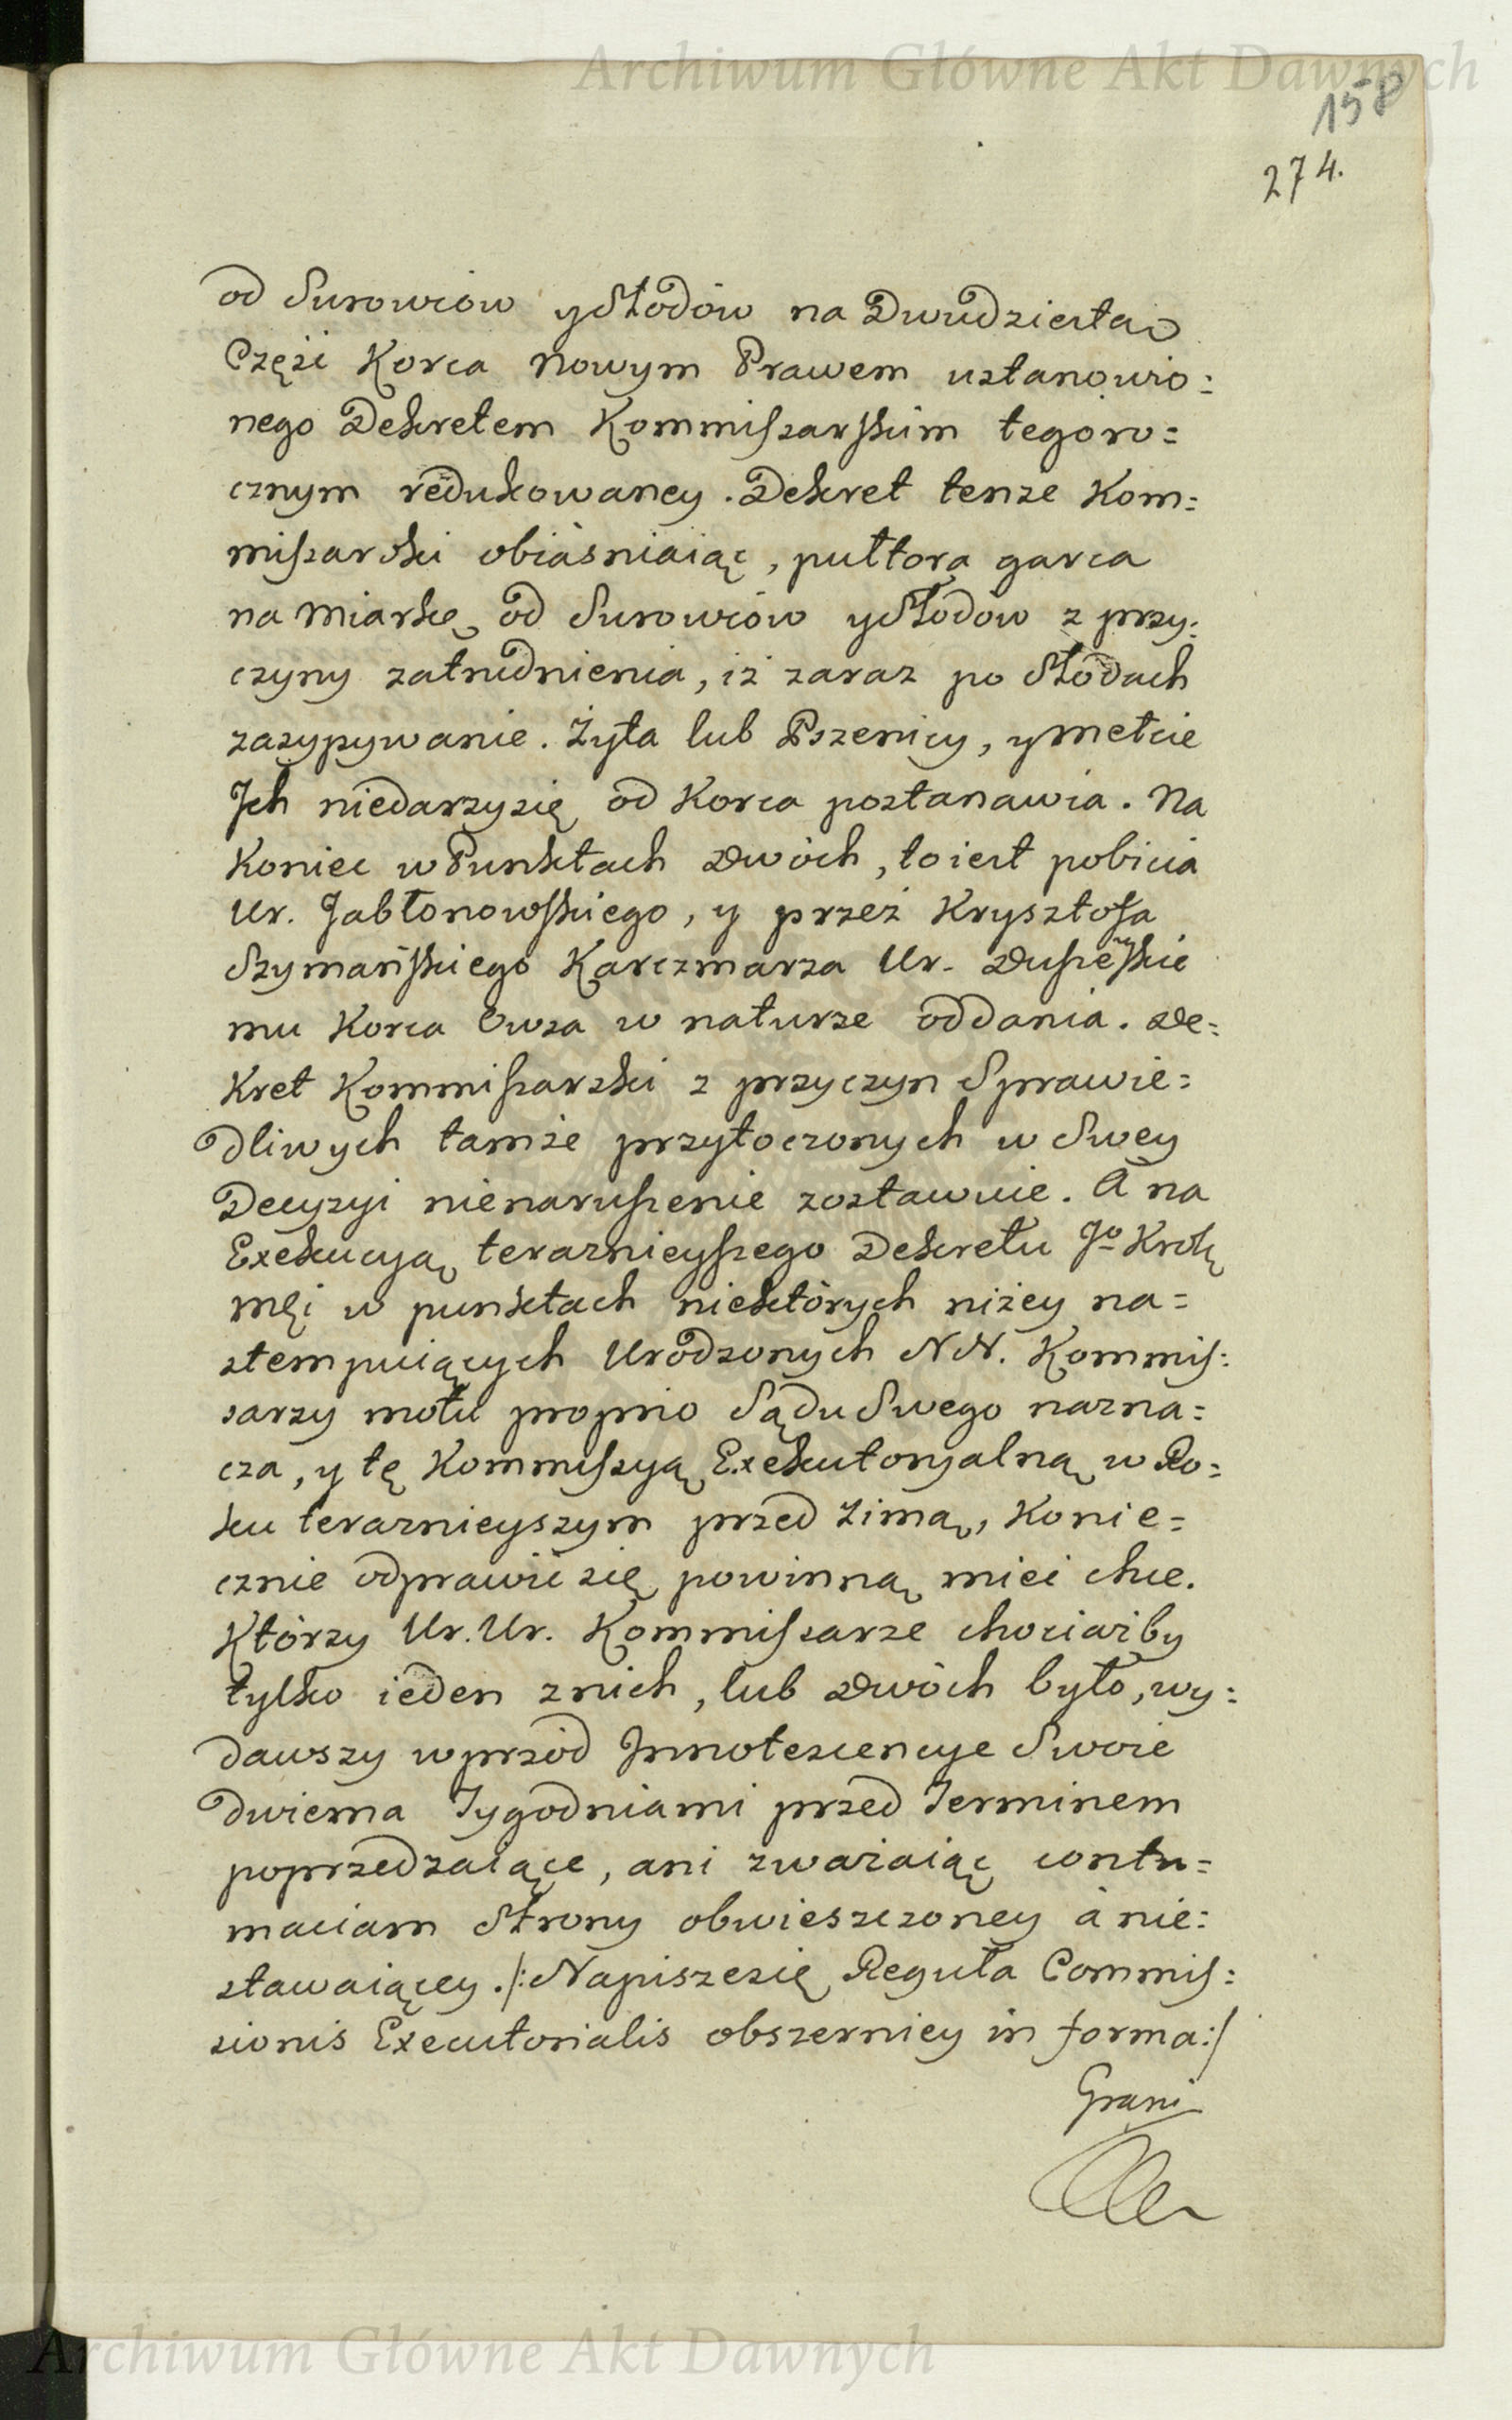 Archiwum Główne Akt Dawnych
158
274.
od Surowców y Słodów na Dwudziestą
Częźć Korca Nowym Prawem ustanowio:
nego Dekretem Kommiszarskim tegoro=
cznym redukowaney. Dekret tenze Kom:
miszarski obiásniaiąc, pułtora garca
na Miarkę od Surowców y Słodów z przy:
czyny zatrudnienia, iż zaraz po Słodach
zasypywanie. Żyta lub Pszenicy, y Mełcie
Jch niedarzysię od Korca postanawia. Na
Koniec w Punktach Dwóch, toiest pobicia
Ur. Jabłonowskiego, y przez Krysztofa
Szymańskiego Karczmarza Ur. Dusieskie
mu Korca Owsa w naturze oddania. De=
Kret Kommiszarski z przyczyn Sprawie=
dliwych tamże przytoczonych w Swey
Decyzyi nienaruszenie zostawuie. A na
Exekucyą terazniejszego Dekretu Jo Krolę
Mći w punktach niektórych niżey na=
stempuiących Urodzonych N N. Kommis:
sarzy motu proprio Sądu Swego nazna=
cza, y tę Kommiszyą Exekutoryalną w Ro=
ku terazniejszym przed Zimą, Konie=
cznie odprawić się powinną mieć chce.
Którzy Ur. Ur. Kommiszarze chociażby
tylko ieden znich, lub Dwóch było, wy:
dawszy wprzód Jnnotescencye Swoie
dwiema Tygodniami przed Terminem
poprzedzaiące, ani zważaiąc contu=
maciam Strony obwieszczoney á nie:
stawaiącey. /: Napiszesię Reguła Commis:
sionis Executorialis obszerniey in forma :/
Archiwum Główne Akt Dawnych